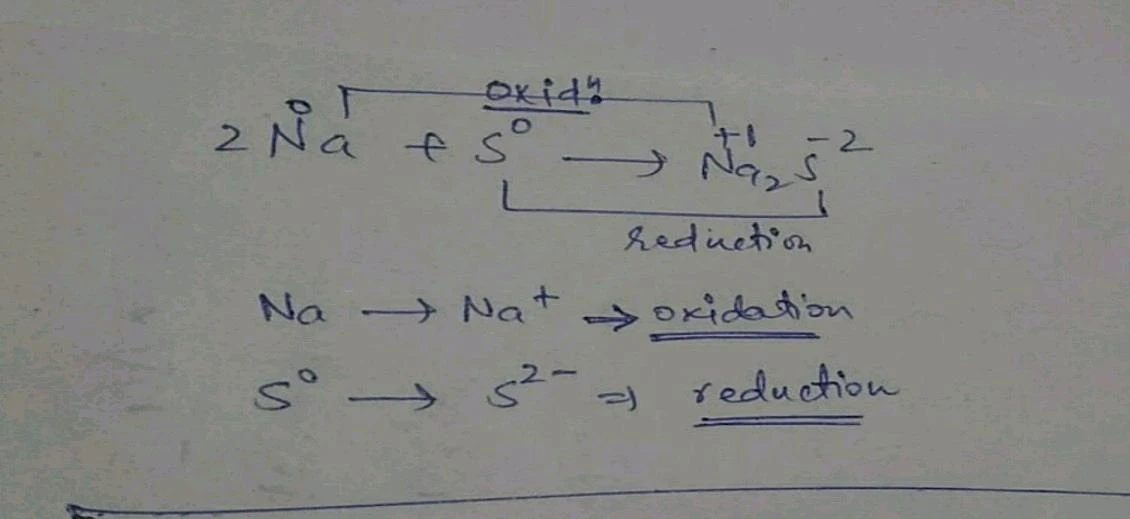 oxidⁿ.
2 Na⁰ + S⁰ → Na₂⁺¹ S⁻²
reduction
Na → Na⁺ ⇒ oxidation
S⁰ → S²⁻ ⇒ reduction